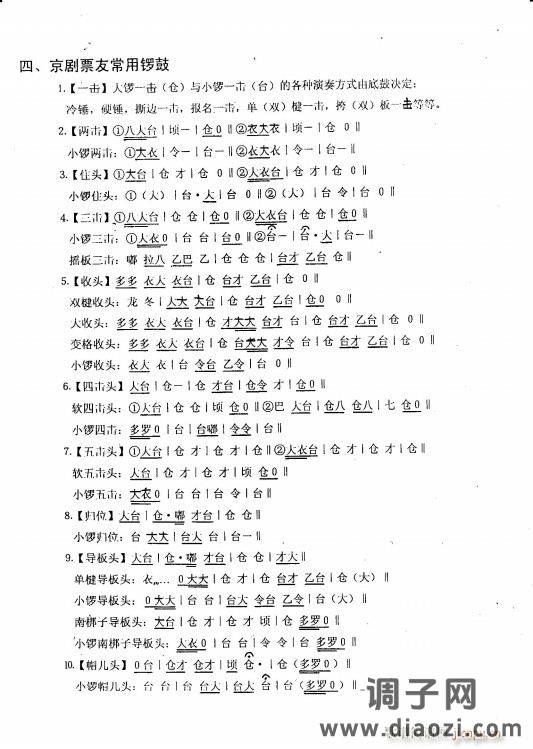 四、京剧票友常用锣鼓
1.【一击】大锣一击(仓)与小锣一击(台)的各种演奏方式由底鼓决定:
冷锤,硬锤,撕边一击,报名一击,单(双)楗一击,挎(双)板一击等等。
2.【两击】①八大台|顷一|仓 0‖②衣大衣|顷一|仓 0‖
小锣两击:①大衣|令一|台一‖②衣大衣|令一|台一‖
3.【住头】①大台|仓 才|仓 0‖②大衣台|仓 才|仓 0‖
小锣住头:①(大)|台·大|台 0‖②(大)|台 令|台 0‖
4.【三击】①八大台|仓 仓|仓 0‖②大衣台|仓 仓|仓 0‖
小锣三击:①大衣 0|台 台|台 0‖②台一|台·大|台一‖
摇板三击:嘟 拉八 乙巴 乙|仓 仓 仓|台才 乙台 仓‖
5.【收头】多多 衣大 衣台|仓 台才 乙台|仓 0‖
双楗收头:龙 冬|大大 大台|仓 台才 乙台|仓 0‖
大收头:多多 衣大 衣台|仓 才大大 台才|仓 台才 乙台|仓 0‖
变格收头:多多 衣大 衣台|仓 台大大 才令|仓 台才 乙台 仓 0‖
小锣收头:衣大 衣|台 令台 乙令|台 0‖
6.【四击头】大台|仓一|仓 才台|仓令 才|仓 0‖
软四击头:①大台|仓 仓|顷 仓 0‖②巴 大台|仓八 仓八|七 仓 0‖
小锣四击:多罗 0|台 台嘟|令令|台‖
7.【五击头】①大台|仓 才 仓 才|仓‖②大衣台|仓 才|仓 才|仓‖
软五击头:大台|仓 才|仓 才|顷 仓 0‖
小锣五击:大衣 0|台 台|台 令|台‖
8.【归位】大台|仓·嘟 才台|仓‖
小锣归位:台 大大|台大 台|台一‖
9.【导板头】大台|仓·嘟 才台|仓 仓|才大‖
单楗导板头:衣……0 大大|仓 才|仓 台才 乙台|仓(大)‖
小锣导板头:0 大大|台 台|台大 令台 乙令|台(大)‖
南梆子导板头:大台|仓 才|仓 才 顷|仓 多罗 0‖
小锣南梆子导板头:大衣 0|台 台|台令 令|台 多罗 0‖
10.【帽儿头】0 台|仓才 仓才|顷 仓·|仓(多罗 0)‖
小锣帽儿头:台 台|台 台大|台大 台|台(多罗 0)‖
调子网
www.diaozi.com